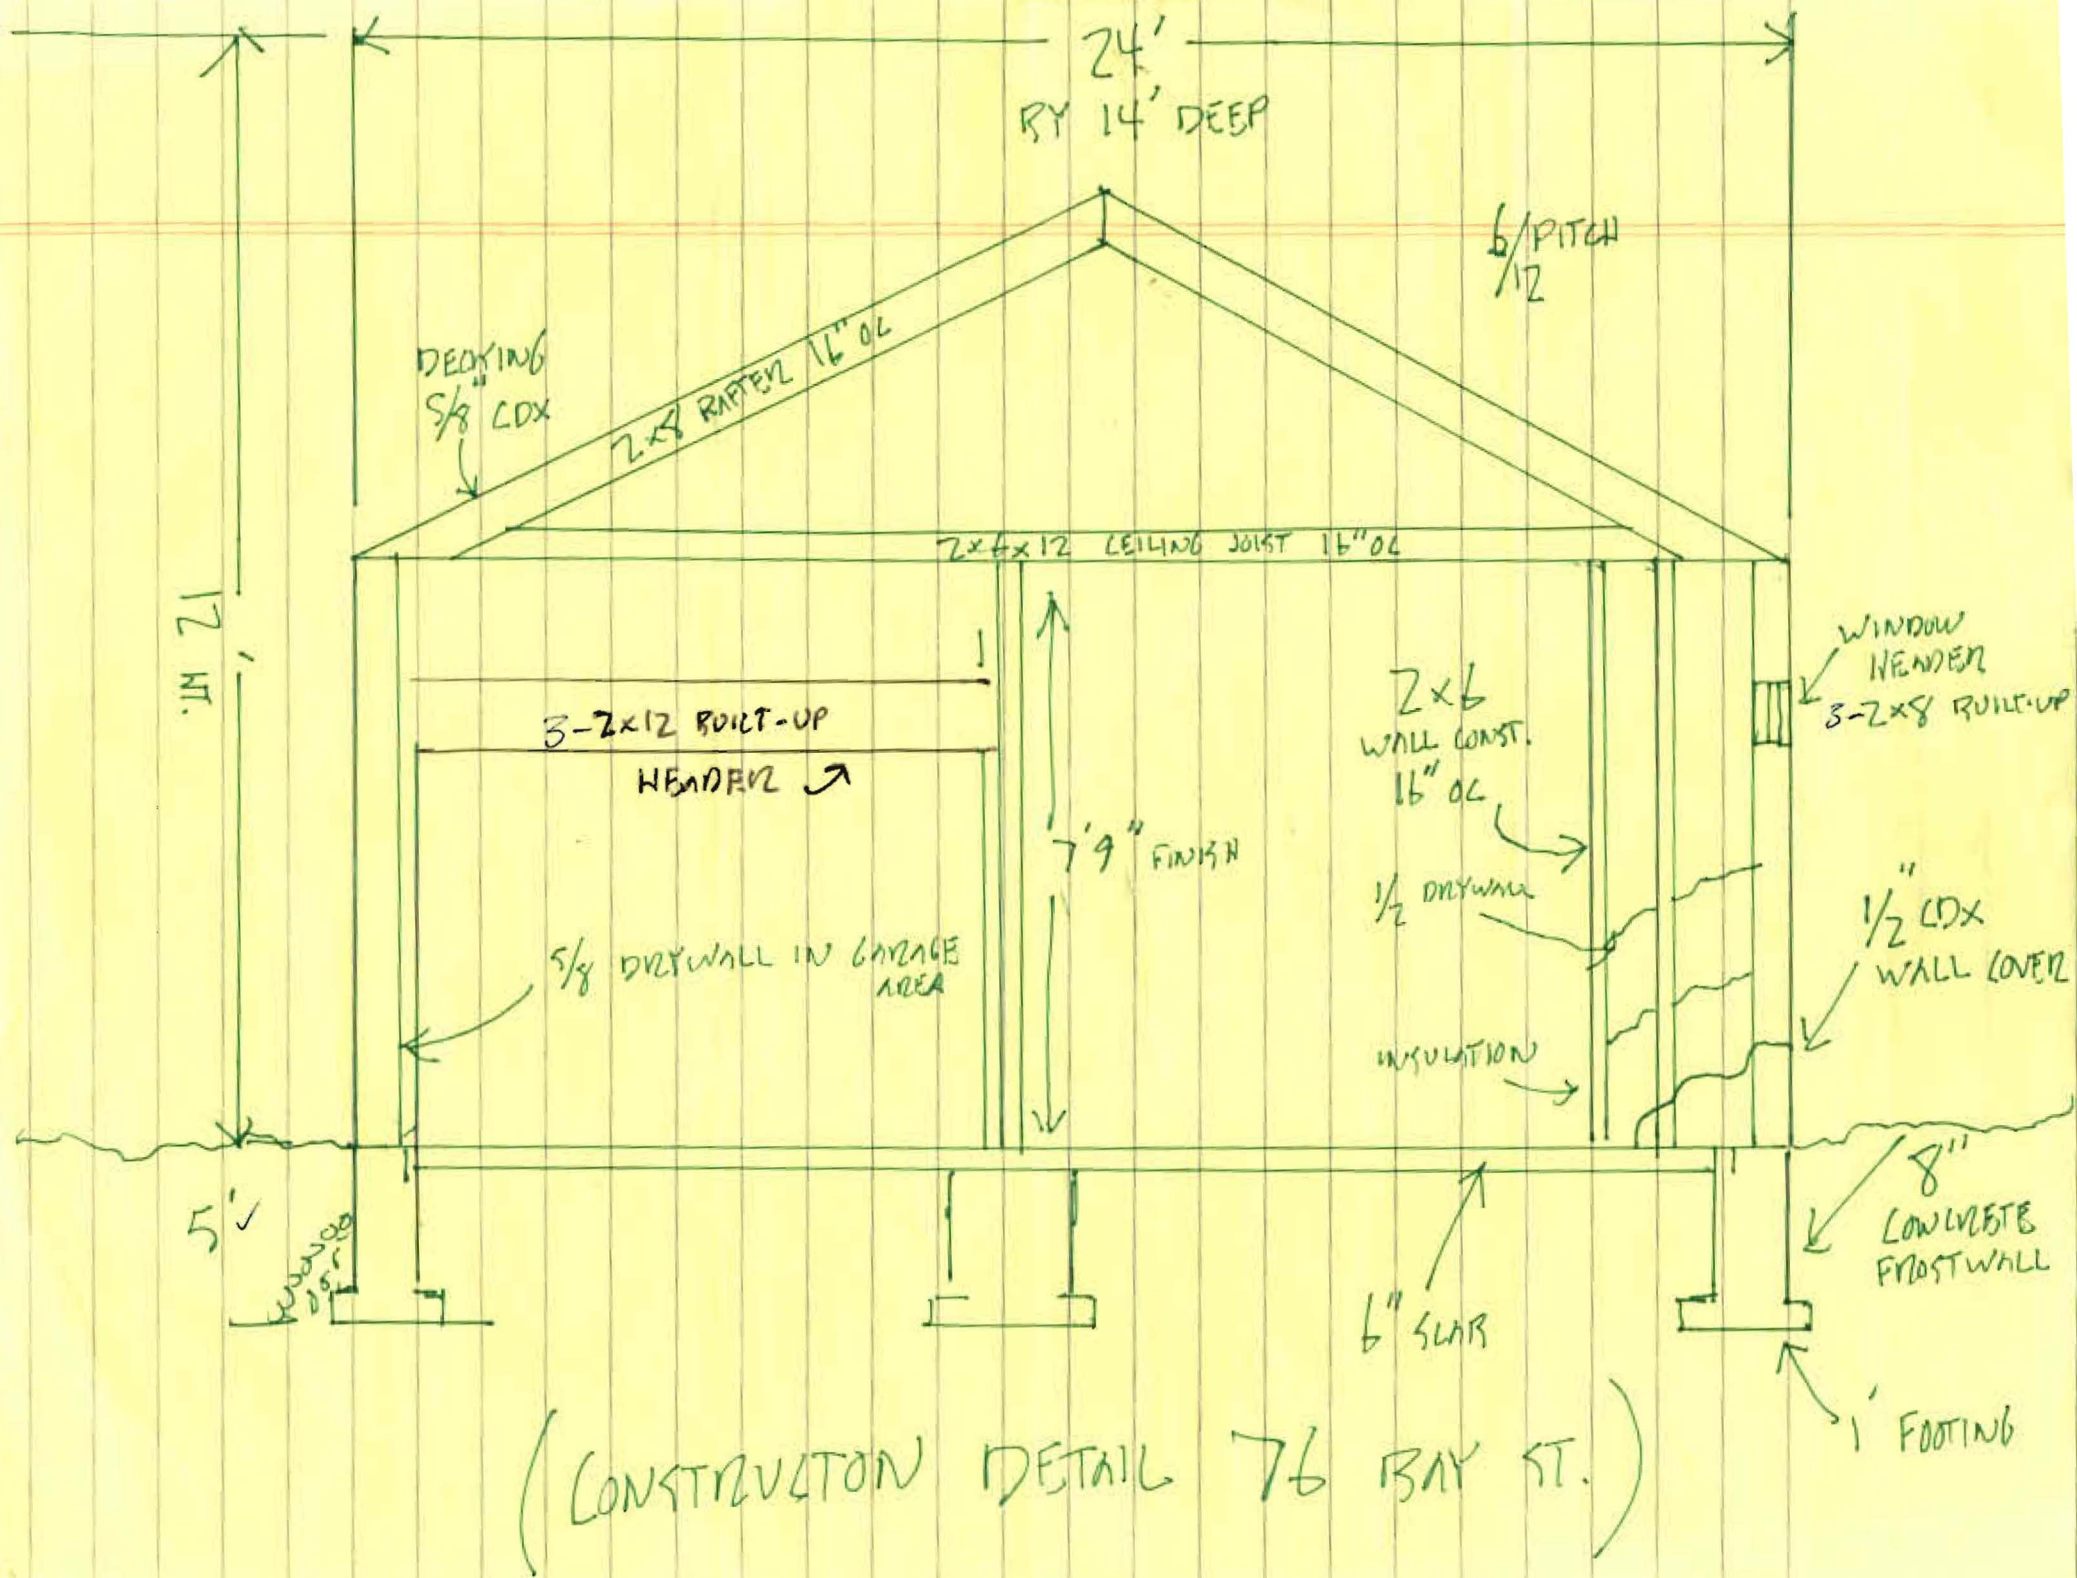 24'
BY 14' DEEP
6/12 PITCH
DECKING
5/8" CDX
2x8 RAFTER 16" OC
2x6x12 CEILING JOIST 16" OC
12' HT.
WINDOW
HEADER
3-2x8 BUILT-UP
3-2x12 BUILT-UP
HEADER
2x6
WALL CONST.
16" OC
7'9" FINISH
1/2 DRYWALL
1/2" CDX
WALL COVER
5/8 DRYWALL IN GARAGE
AREA
INSULATION
5'
8"
CONCRETE
FROSTWALL
6" SLAB
1' FOOTING
(CONSTRUCTON DETAIL 76 BAY ST.)